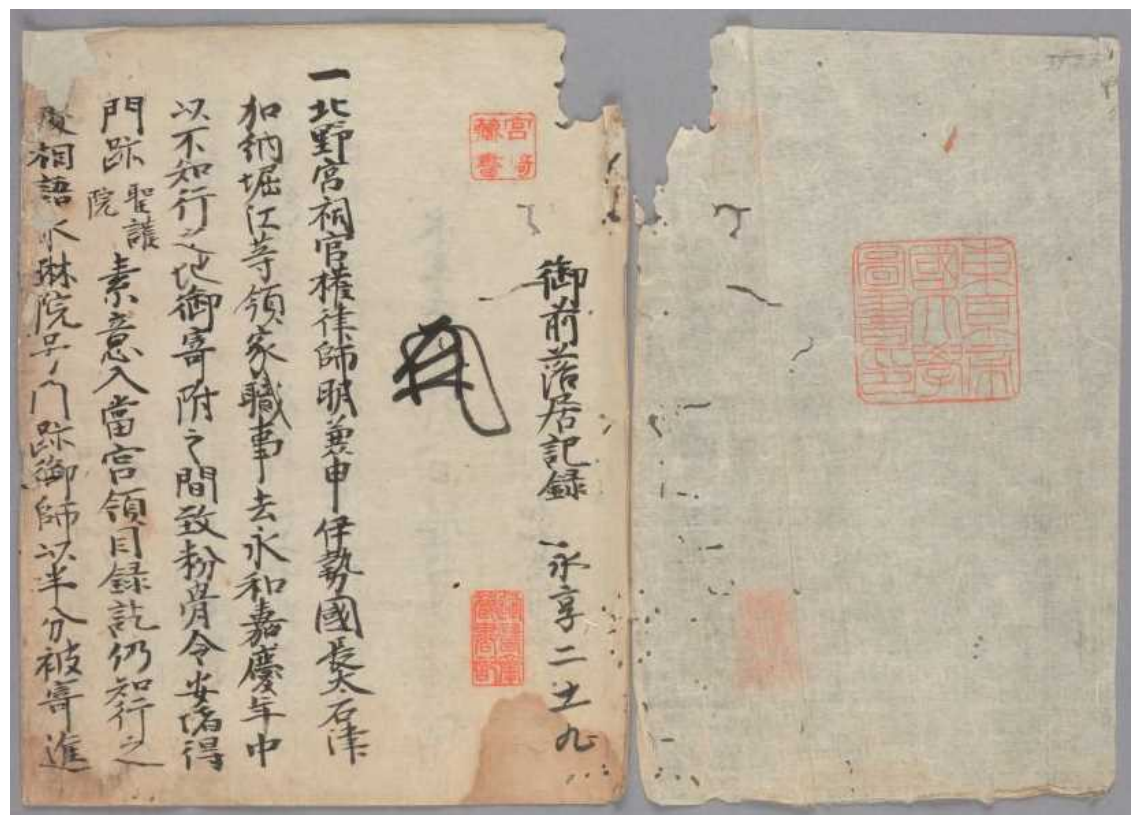 東京帝
國大學
圖書印
宮崎
藏書
御前落居記錄 永享二 十一 九
一北野宮祠官權律師明兼申伊勢國長太石津
加納堀江等領家職事去永和嘉慶年中
以不知行之地御寄附之間致粉骨令安堵得
門跡聖護院素意入當宮領目録訖仍知行之
祠語 琳院号門跡御師以半分被寄進